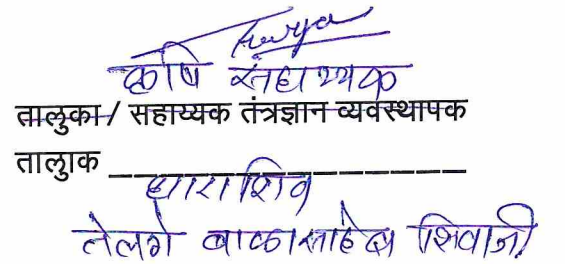 कृषि सहाय्यक
तालुका / सहाय्यक तंत्रज्ञान व्यवस्थापक
तालुाक
धाराशिव
तेलगे बाळासाहेब शिवाजी